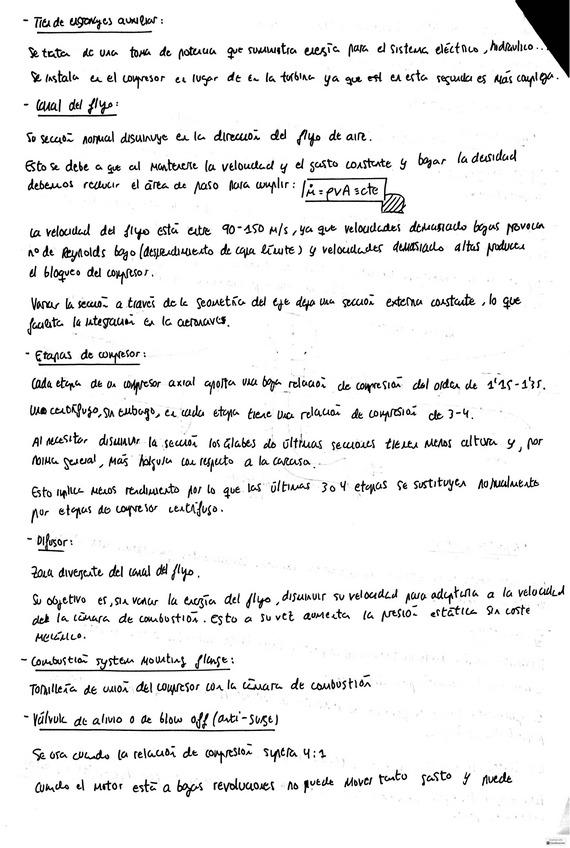 - Tren de engranajes auxiliar:
Se trata de una toma de potencia que suministra energía para el sistema eléctrico, hidráulico...
Se instala en el compresor en lugar de en la turbina ya que est en esta segunda es más compleja.
- Canal del flujo:
Su sección normal disminuye en la dirección del flujo de aire.
Esto se debe a que al mantenerse la velocidad y el gasto constante y bajar la densidad
debemos reducir el área de paso para cumplir: ṁ = ρvA ≡ cte
La velocidad del flujo está entre 90-150 m/s, ya que velocidades demasiado bajas provocan
nº de Reynolds bajo (desprendimiento de capa límite) y velocidades demasiado altas producen
el bloqueo del compresor.
Variar la sección a través de la geometría del eje deja una sección externa constante, lo que
facilita la integración en la aeronaves.
- Etapas de compresor:
Cada etapa de un compresor axial aporta una baja relación de compresión del orden de 1'15-1'35.
Uno centrífugo, sin embargo, en cada etapa tiene una relación de compresión de 3-4.
Al necesitar disminuir la sección los álabes de últimas secciones tienen menos altura y, por
norma general, más holgura con respecto a la carcasa.
Esto implica menos rendimiento por lo que las últimas 3 o 4 etapas se sustituyen normalmente
por etapas de compresor centrífugo.
- Difusor:
Zona divergente del canal del flujo.
Su objetivo es, sin variar la energía del flujo, disminuir su velocidad para adaptarla a la velocidad
de la cámara de combustión. Esto a su vez aumenta la presión estática sin coste
mecánico.
- Combustion system mounting flange:
Tornillería de unión del compresor con la cámara de combustión
- Válvula de alivio o de blow off (anti-surge)
Se usa cuando la relación de compresión supera 4:1
Cuando el motor está a bajas revoluciones no puede mover tanto gasto y puede